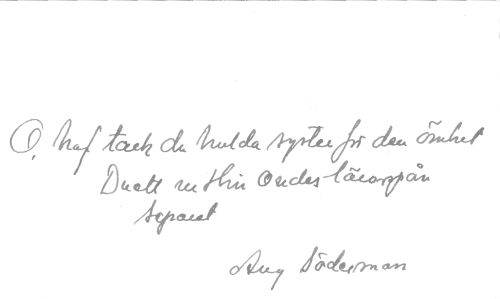 O, haf tack du hulda syster för den ömhet
Duett ur Hin Ondes läroospån
separat
Aug Söderman